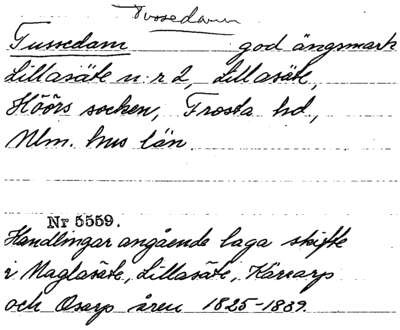 Tussedam
Tussedam god ängsmark
Lillasäte n:r 2, Lillasäte,
Höörs socken, Frosta hd,
Mlm. hus län
Nr 5559.
Handlingar angående laga skifte
i Maglasäte, Lillasäte, Kärrarp
och Osarp åren 1825-1839.